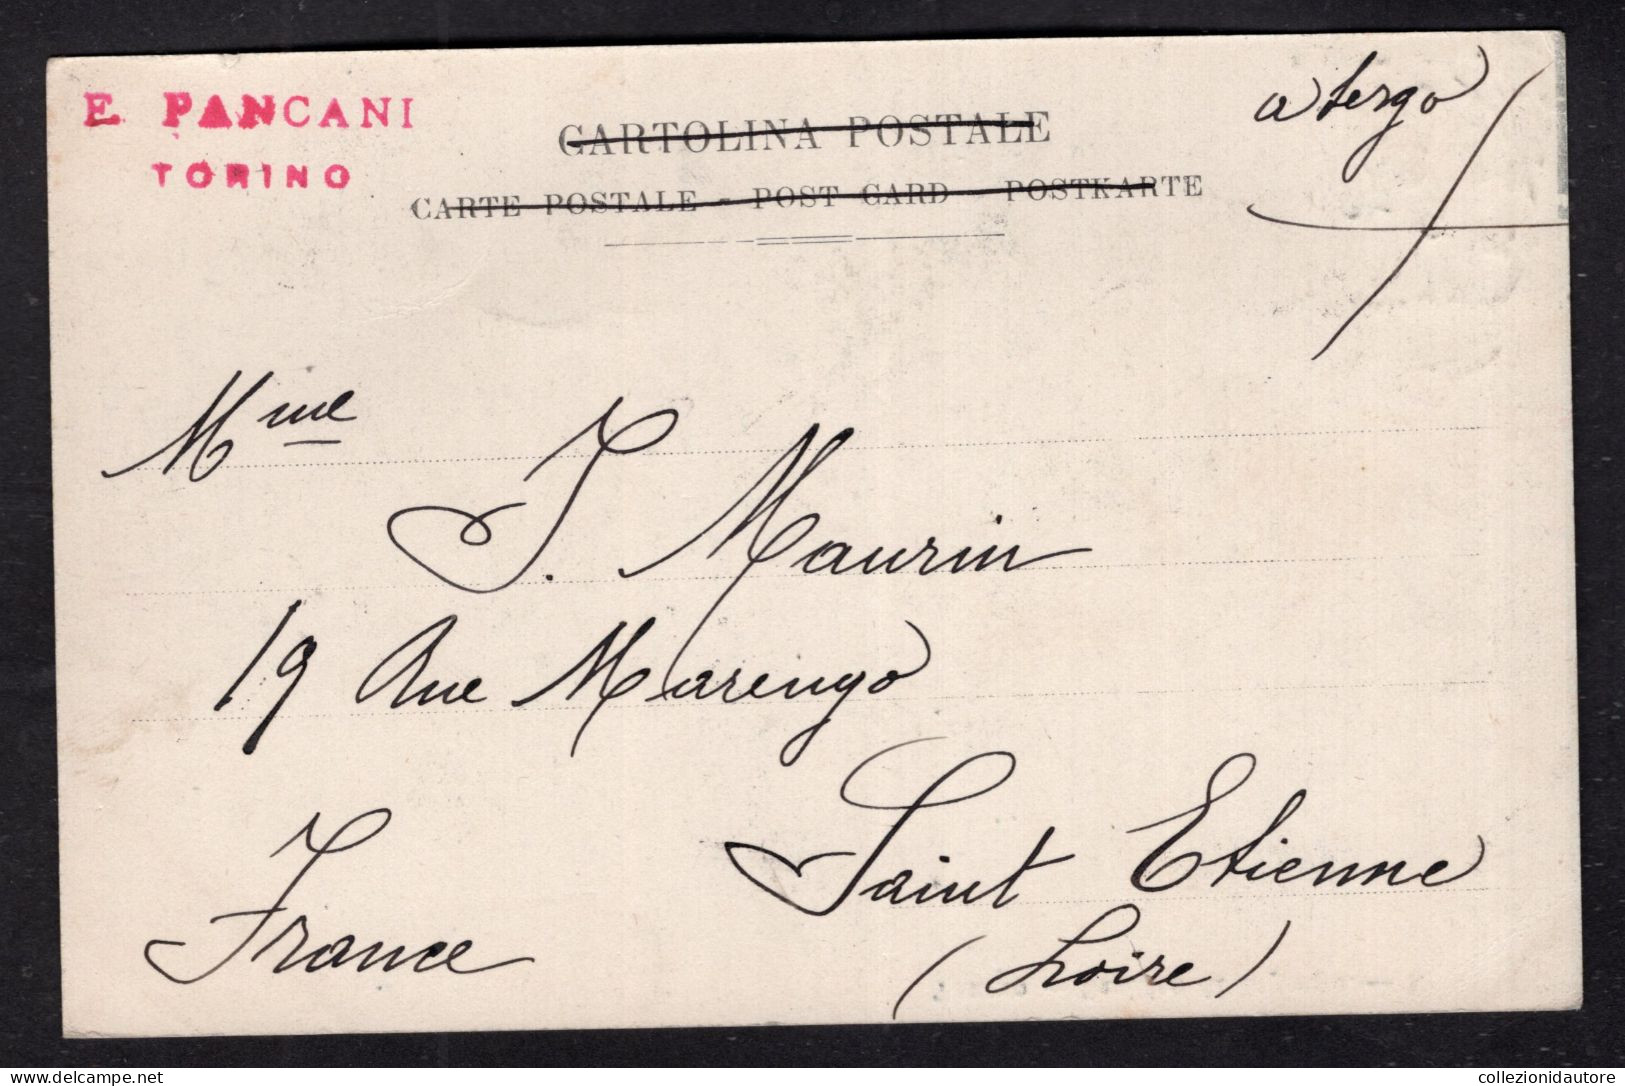 E. PANCANI
TORINO
CARTOLINA POSTALE
CARTE POSTALE - POST CARD - POSTKARTE
a tergo
Mme
J. Maurin
19 Rue Marengo
Saint Etienne
(Loire)
France
delcampe.net
collezionidautore